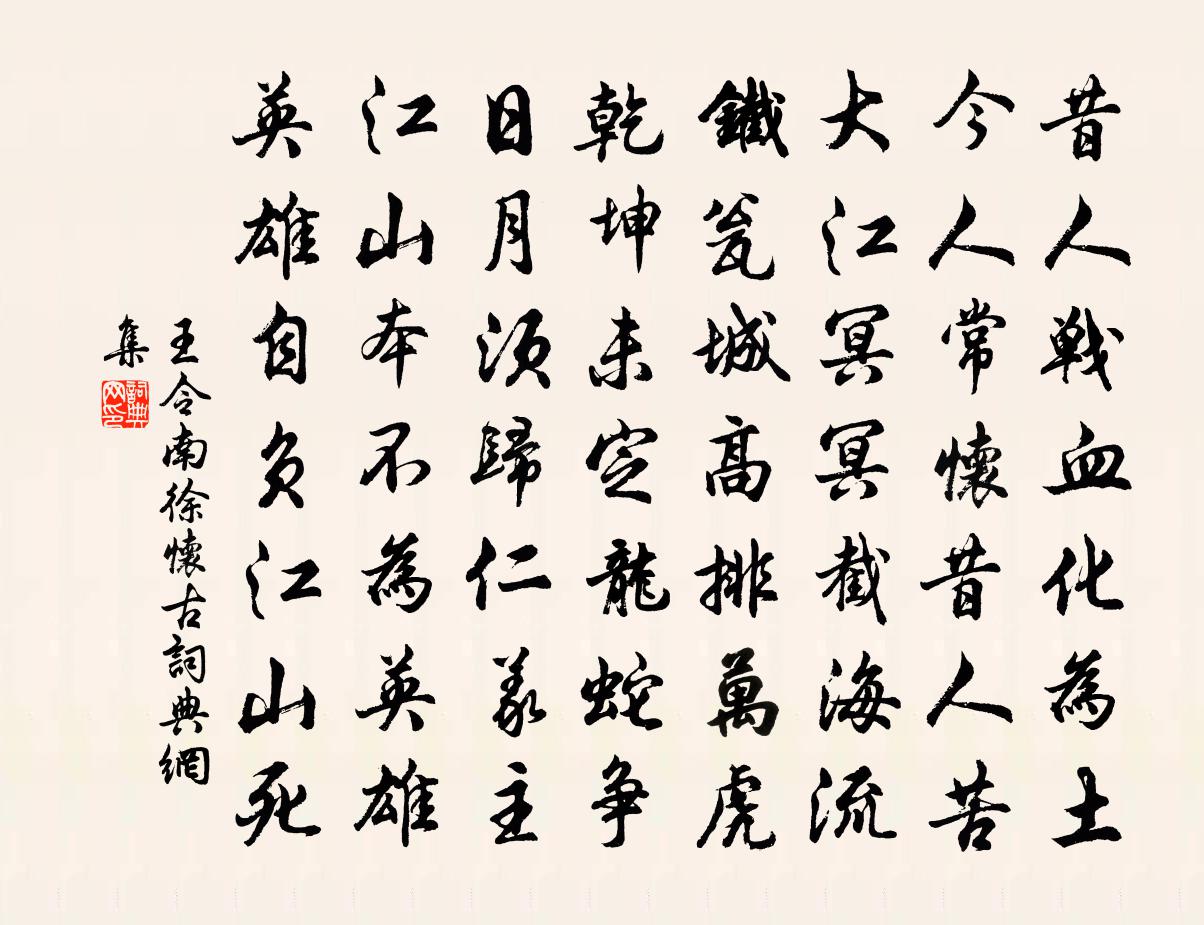 昔人戦血化為土
今人常懷昔人苦
大江冥冥截海流
鐵瓮城高排萬虎
乾坤未定龍蛇争
日月須歸仁義主
江山本不為英雄
英雄自負江山死
王令南徐懷古詞典網
集
詞典
网印